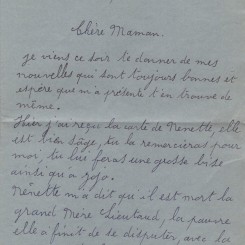 Chère Maman.
je viens ce soir te donner de mes
nouvelles qui sont toujours bonnes et
espère que m'a présente t'en trouve de
même.
Hier j'ai reçu la carte de Nénette, elle
est bien sage, tu la remercieras pour
moi, tu lui feras une grosse bise
ainsi qu'a jojo.
Nénette m'a dit qu'il est mort la
grand Mère Lieutaud, la pauvre
elle à finit de se disputer avec la